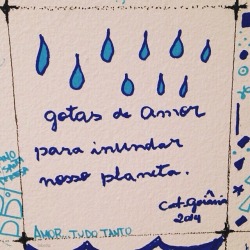 gotas de amor
para inundar
nosso planeta.
Cat. Goiânia
2014
AMOR TUDO TANTO